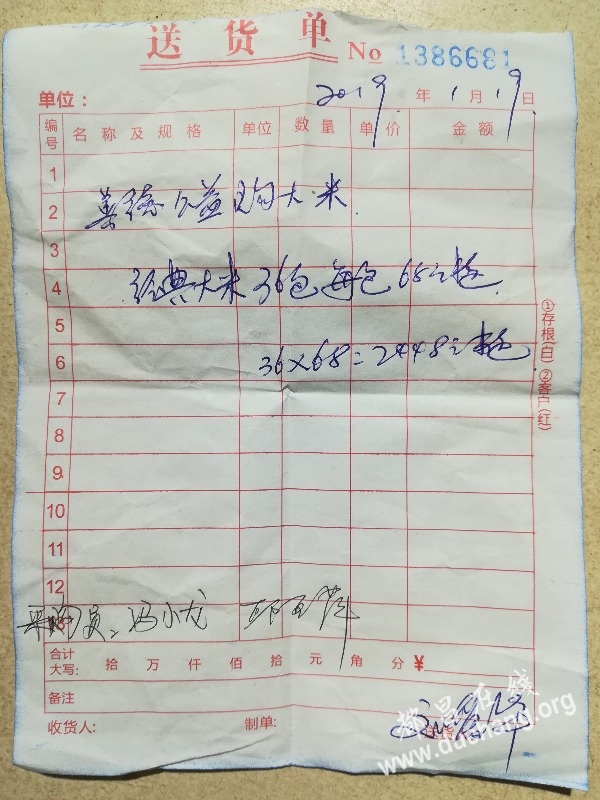 送货单 No 1386681
单位： 2019 年 1 月 19 日
编号 名称及规格 单位 数量 单价 金额
1
2 善德公益购大米
3
4 经典大米 36包 每包 68元
5
6 36×68=2448元
7
8
9
10
11
12
采购员：冯小龙
合计 大写： 拾 万 仟 佰 拾 元 角 分 ￥
备注
收货人： 制单：
①存根(白) ②客户(红)
都昌在线
www.duchang.org